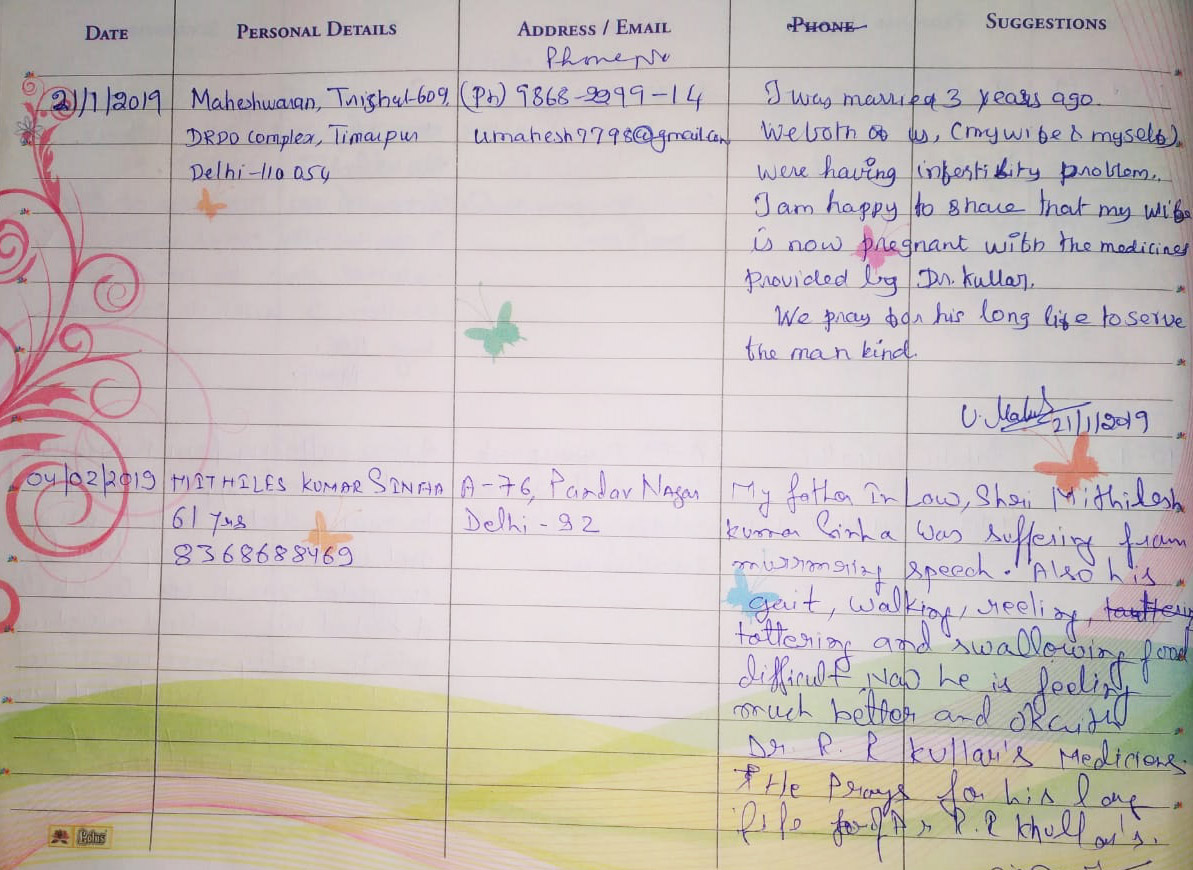 DATE PERSONAL DETAILS ADDRESS / EMAIL PHONE SUGGESTIONS
Phone No
21/1/2019 Maheshwaran, Trishul-609, (Ph) 9868-2299-14 I was married 3 years ago.
DRDO Complex, Timarpur umahesh7798@gmail.com We both of us, (my wife & myself)
Delhi-110 054 were having infertility problem.
I am happy to share that my wife
is now pregnant with the medicines
provided by Dr. Kullar.
We pray for his long life to serve
the man kind.
U. Mahesh 21/1/2019
04/02/2019 MITHILES KUMAR SINHA A-76, Pandav Nagar My father In Law, Shri Mithilesh
61 Yrs Delhi - 92 kumar Sinha was suffering from
8368688469 murmuring speech. Also his
gait, walking, reeling,
tottering and swallowing food
difficult Now he is feeling
much better and ok with
Dr. R. R Kullar's Medicines.
He Prays for his long
life for Dr R.R Khullar's.
Lotus